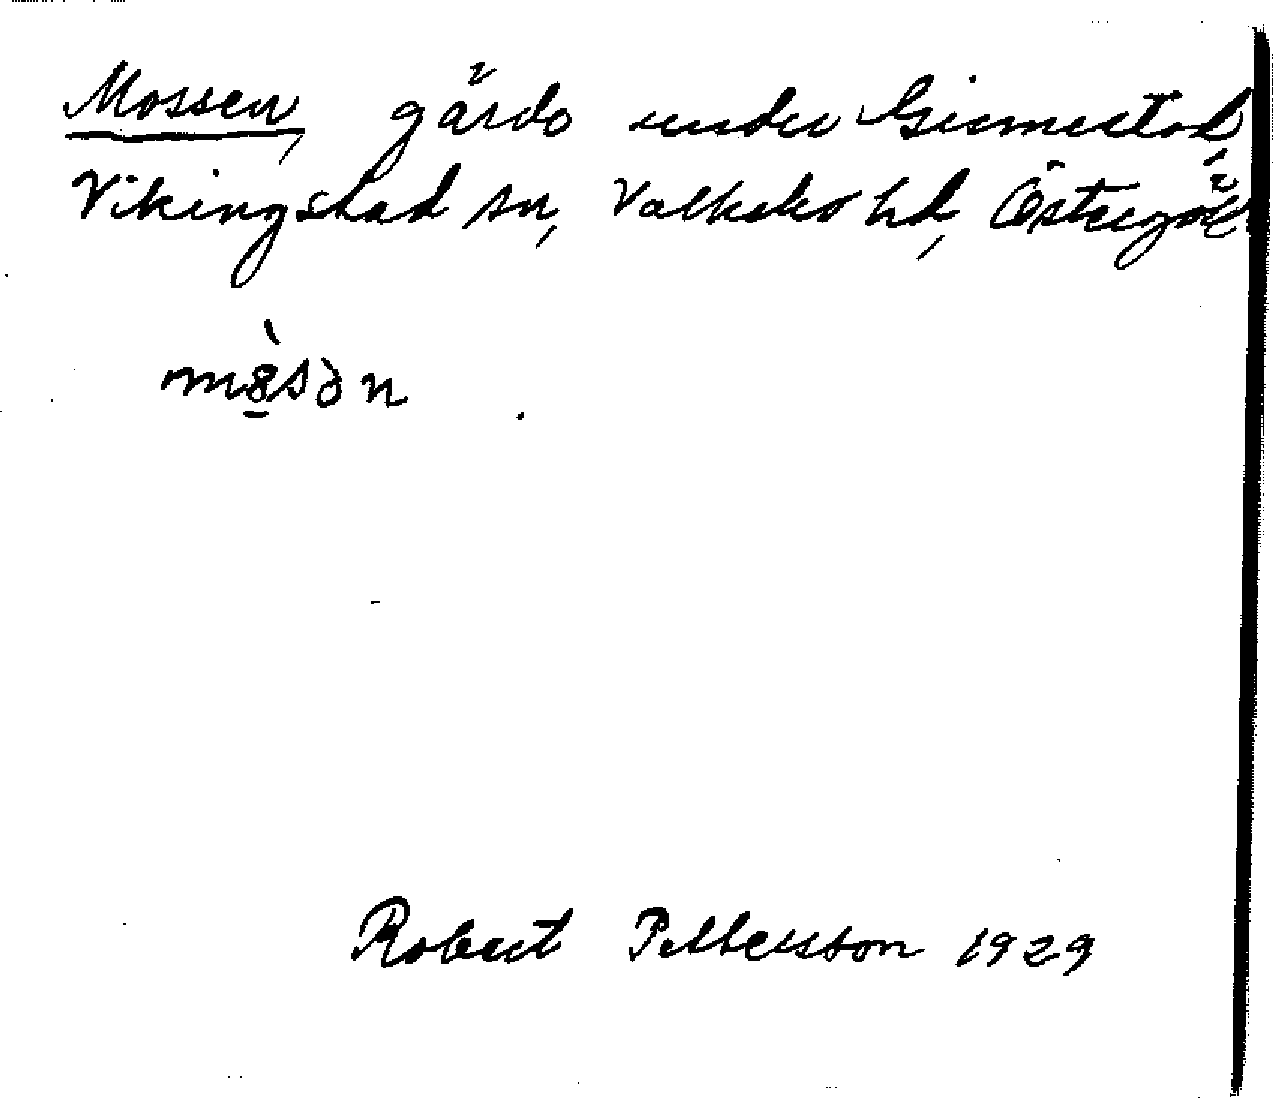 Mossen, gärde under Gismestad,
Vikingstad sn, Valkebo hd, Östergötl
Robert Pettersson 1929